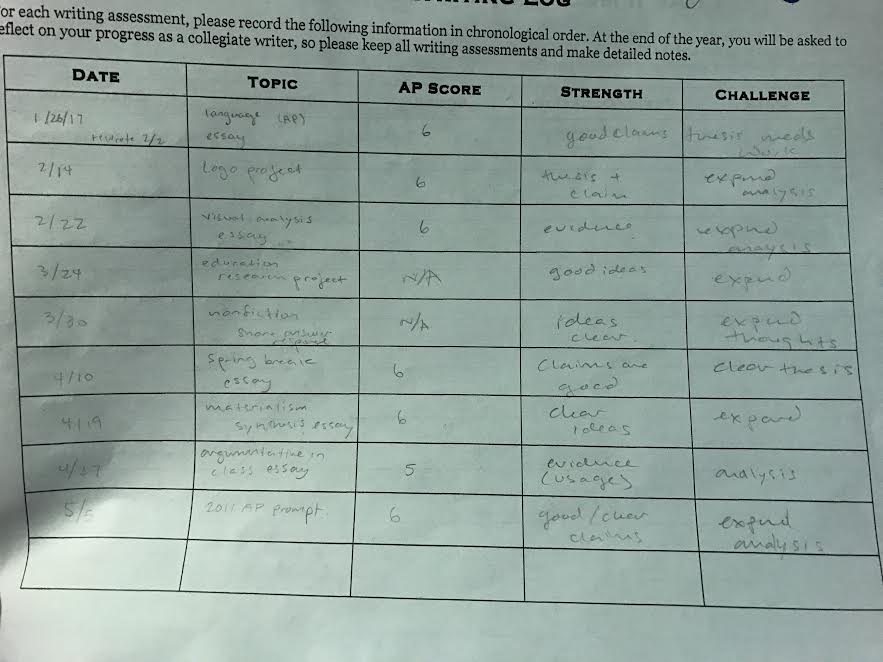 WRITING LOG
or each writing assessment, please record the following information in chronological order. At the end of the year, you will be asked to
eflect on your progress as a collegiate writer, so please keep all writing assessments and make detailed notes.
DATE TOPIC AP SCORE STRENGTH CHALLENGE
1/26/17 language (AP) 6 good claims thesis needs
rewrote 2/2 essay work
2/14 Logo project 6 thesis + expand
claim analysis
2/22 visual analysis 6 evidence expand
essay anaysis
3/24 education N/A good ideas expand
research project
3/30 nonfiction N/A ideas expand
short answer clear thoughts
4/10 Spring break 6 Claims are clear thesis
essay good
4/19 materialism 6 clear expand
synthesis essay ideas
4/27 argumentative in 5 evidence analysis
class essay (usage)
5/5 2011 AP prompt. 6 good/clear expand
claims analysis